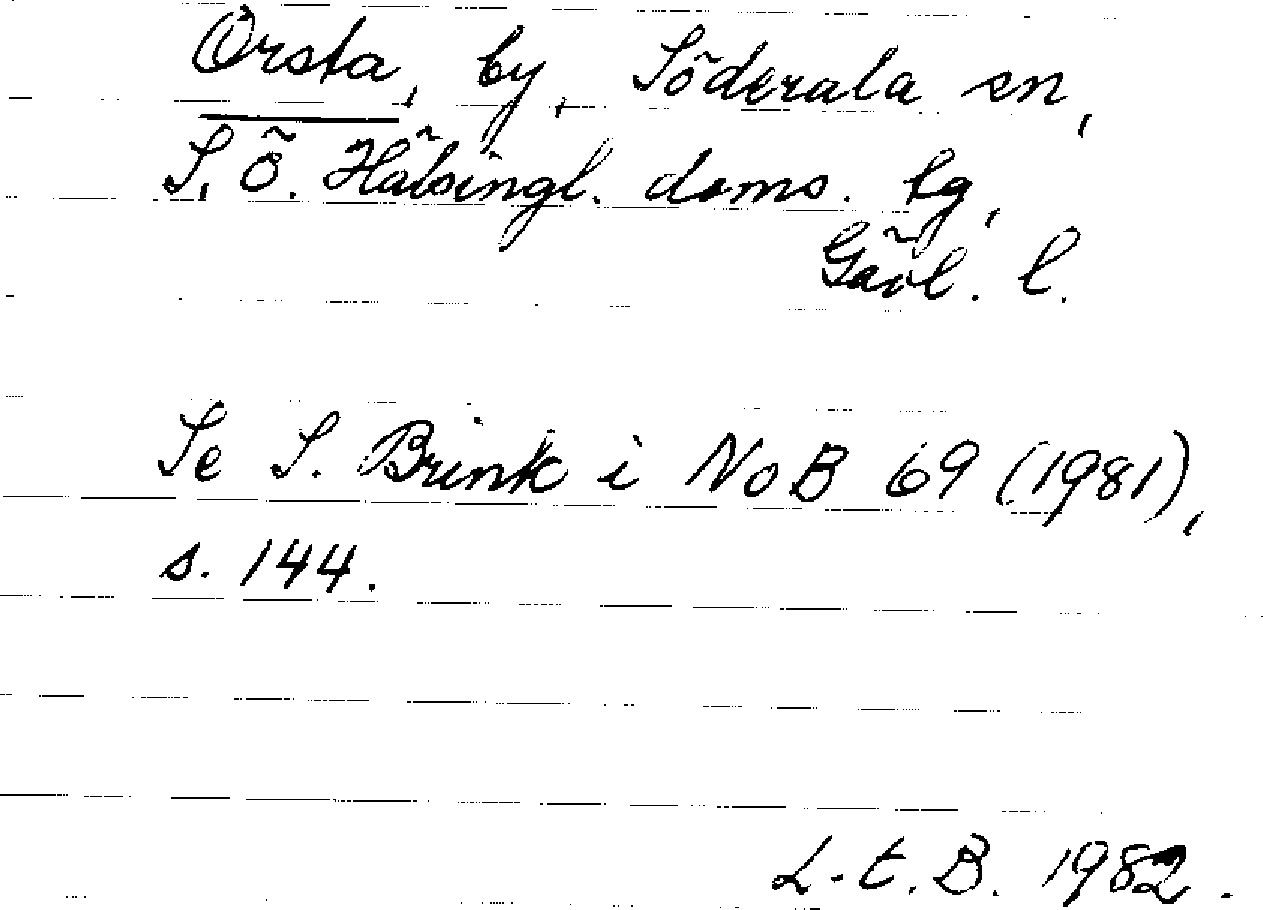 Örsta, by, Söderala sn,
S. Ö. Hälsingl. doms. lg,
Gävl. l.
Se S. Brink i NoB 69 (1981),
s. 144.
L. E. B. 1982.